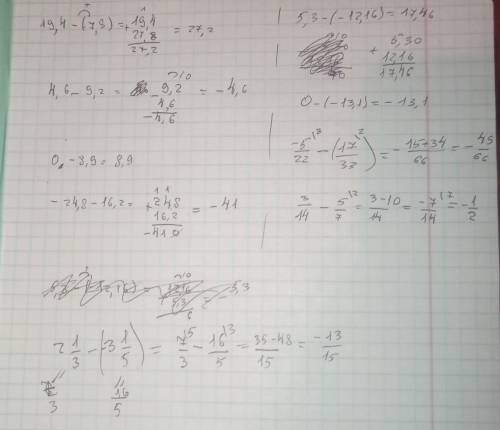 19,4 - (7,8) = + 19,4 = 27,2
27,8
27,2
4,6 - 9,2 = - 9,2 = - 4,6
4,6
- 4,6
0 - 8,9 = 8,9
- 24,8 - 16,2 = + 24,8 = - 41
16,2
- 41 0
2 1/3 - (-3 1/5) = 7/3 - 16/5 = 35-48/15 = -13/15
7/3 16/5
5,3 - (-12,16) = 17,46
+ 5,30
12,16
17,46
0 - (-13,1) = - 13,1
-5/22 - (17/33) = - 15+34/66 = - 45/66
3/14 - 5/7 = 3-10/14 = -7/14 = - 1/2